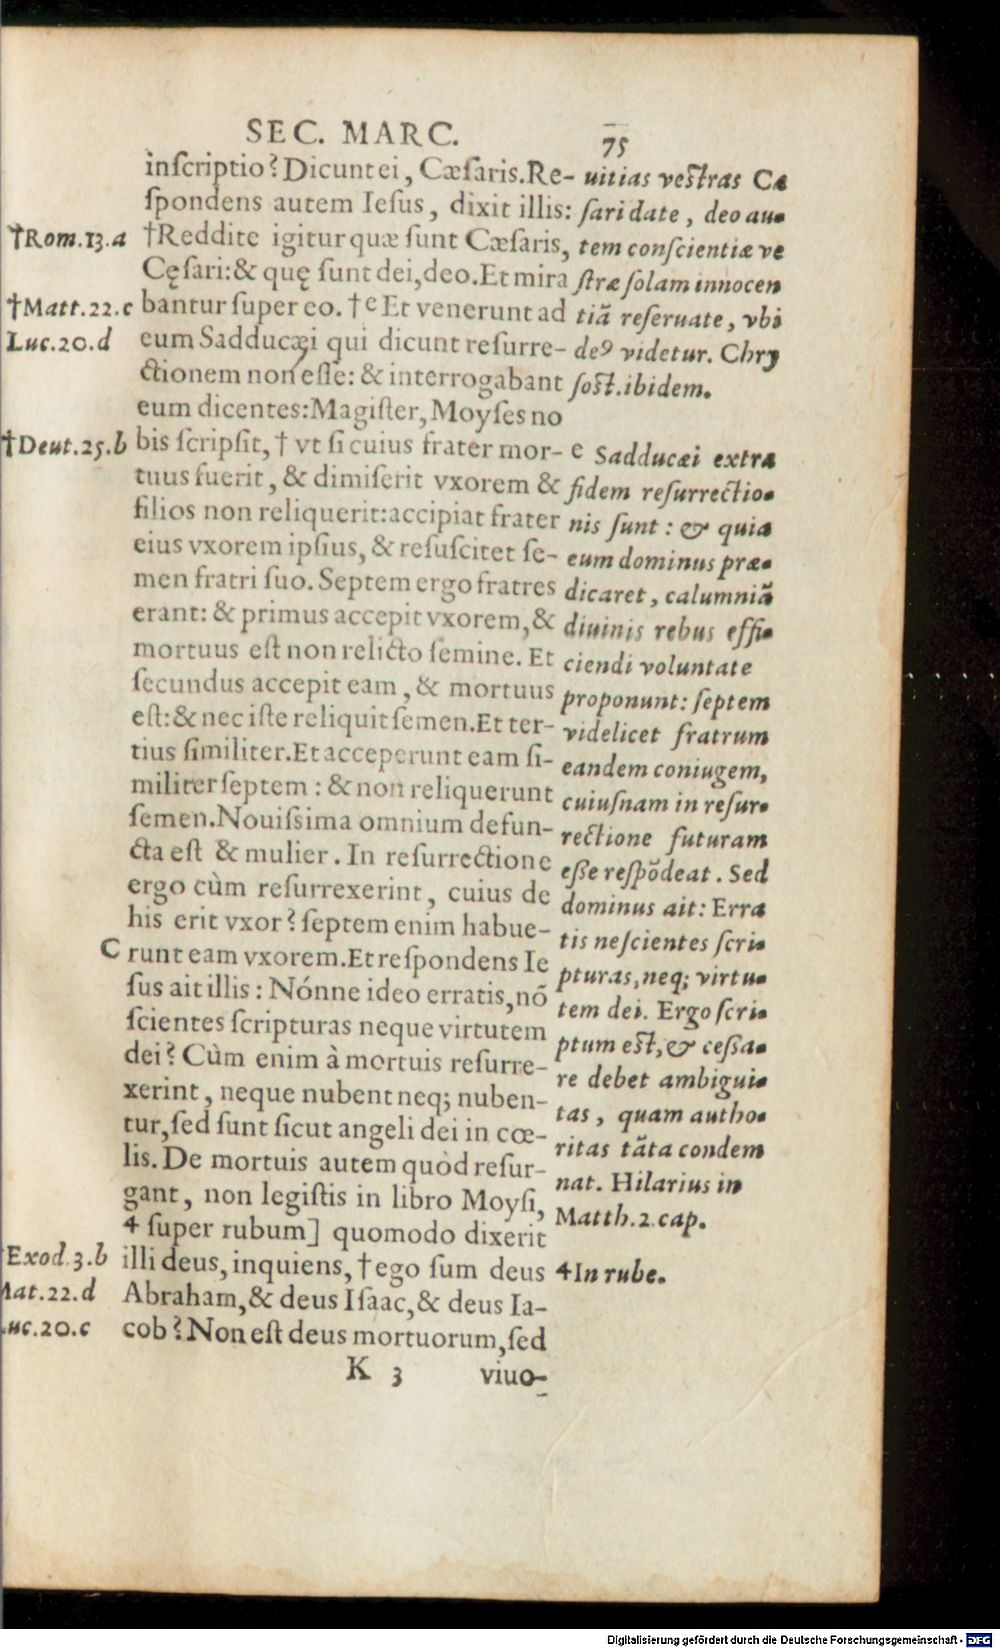 SEC. MARC. 75
inſcriptio? Dicunt ei, Cæſaris. Re-
ſpondens autem Ieſus, dixit illis:
†Reddite igitur quæ ſunt Cæſaris,
Cęſari: & quę ſunt dei, deo. Et mira
bantur ſuper eo. † e Et venerunt ad
eum Sadducæi qui dicunt reſurre-
ctionem non eſſe: & interrogabant
eum dicentes: Magiſter, Moyſes no
bis ſcripſit, † vt ſi cuius frater mor-
tuus fuerit, & dimiſerit vxorem &
filios non reliquerit: accipiat frater
eius vxorem ipſius, & reſuſcitet ſe-
men fratri ſuo. Septem ergo fratres
erant: & primus accepit vxorem, &
mortuus eſt non relicto ſemine. Et
ſecundus accepit eam, & mortuus
eſt: & nec iſte reliquit ſemen. Et ter-
tius ſimiliter. Et acceperunt eam ſi-
militer ſeptem: & non reliquerunt
ſemen. Nouiſsima omnium defun-
cta eſt & mulier. In reſurrectione
ergo cùm reſurrexerint, cuius de
his erit vxor? ſeptem enim habue-
C runt eam vxorem. Et reſpondens Ie
ſus ait illis: Nónne ideo erratis, nō
ſcientes ſcripturas neque virtutem
dei? Cùm enim à mortuis reſurre-
xerint, neque nubent neq; nuben-
tur, ſed ſunt ſicut angeli dei in cœ-
lis. De mortuis autem quòd reſur-
gant, non legiſtis in libro Moyſi,
4 ſuper rubum] quomodo dixerit
illi deus, inquiens, †ego ſum deus
Abraham, & deus Iſaac, & deus Ia-
cob? Non eſt deus mortuorum, ſed
K 3 viuo-
†Rom.13.a
†Matt.22.c
Luc.20.d
†Deut.25.b
Exod.3.b
Mat.22.d
Luc.20.c
uitias veſtras Cæ
ſari date, deo au-
tem conſcientiæ ve
ſtræ ſolam innocen
tiã reſeruate, vbi
deꝰ videtur. Chry
ſoſt. ibidem.
e Sadducæi extra
fidem reſurrectio-
nis ſunt: & quia
eum dominus præ-
dicaret, calumniã
diuinis rebus effi-
ciendi voluntate
proponunt: ſeptem
videlicet fratrum
eandem coniugem,
cuiuſnam in reſur-
rectione futuram
eſſe reſpõdeat. Sed
dominus ait: Erra
tis neſcientes ſcri-
pturas, neq; virtu-
tem dei. Ergo ſcri-
ptum eſt, & ceſſa-
re debet ambigui-
tas, quam autho-
ritas tãta condem
nat. Hilarius in
Matth. 2. cap.
4 In rube.
Digitalisierung gefördert durch die Deutsche Forschungsgemeinschaft - DFG